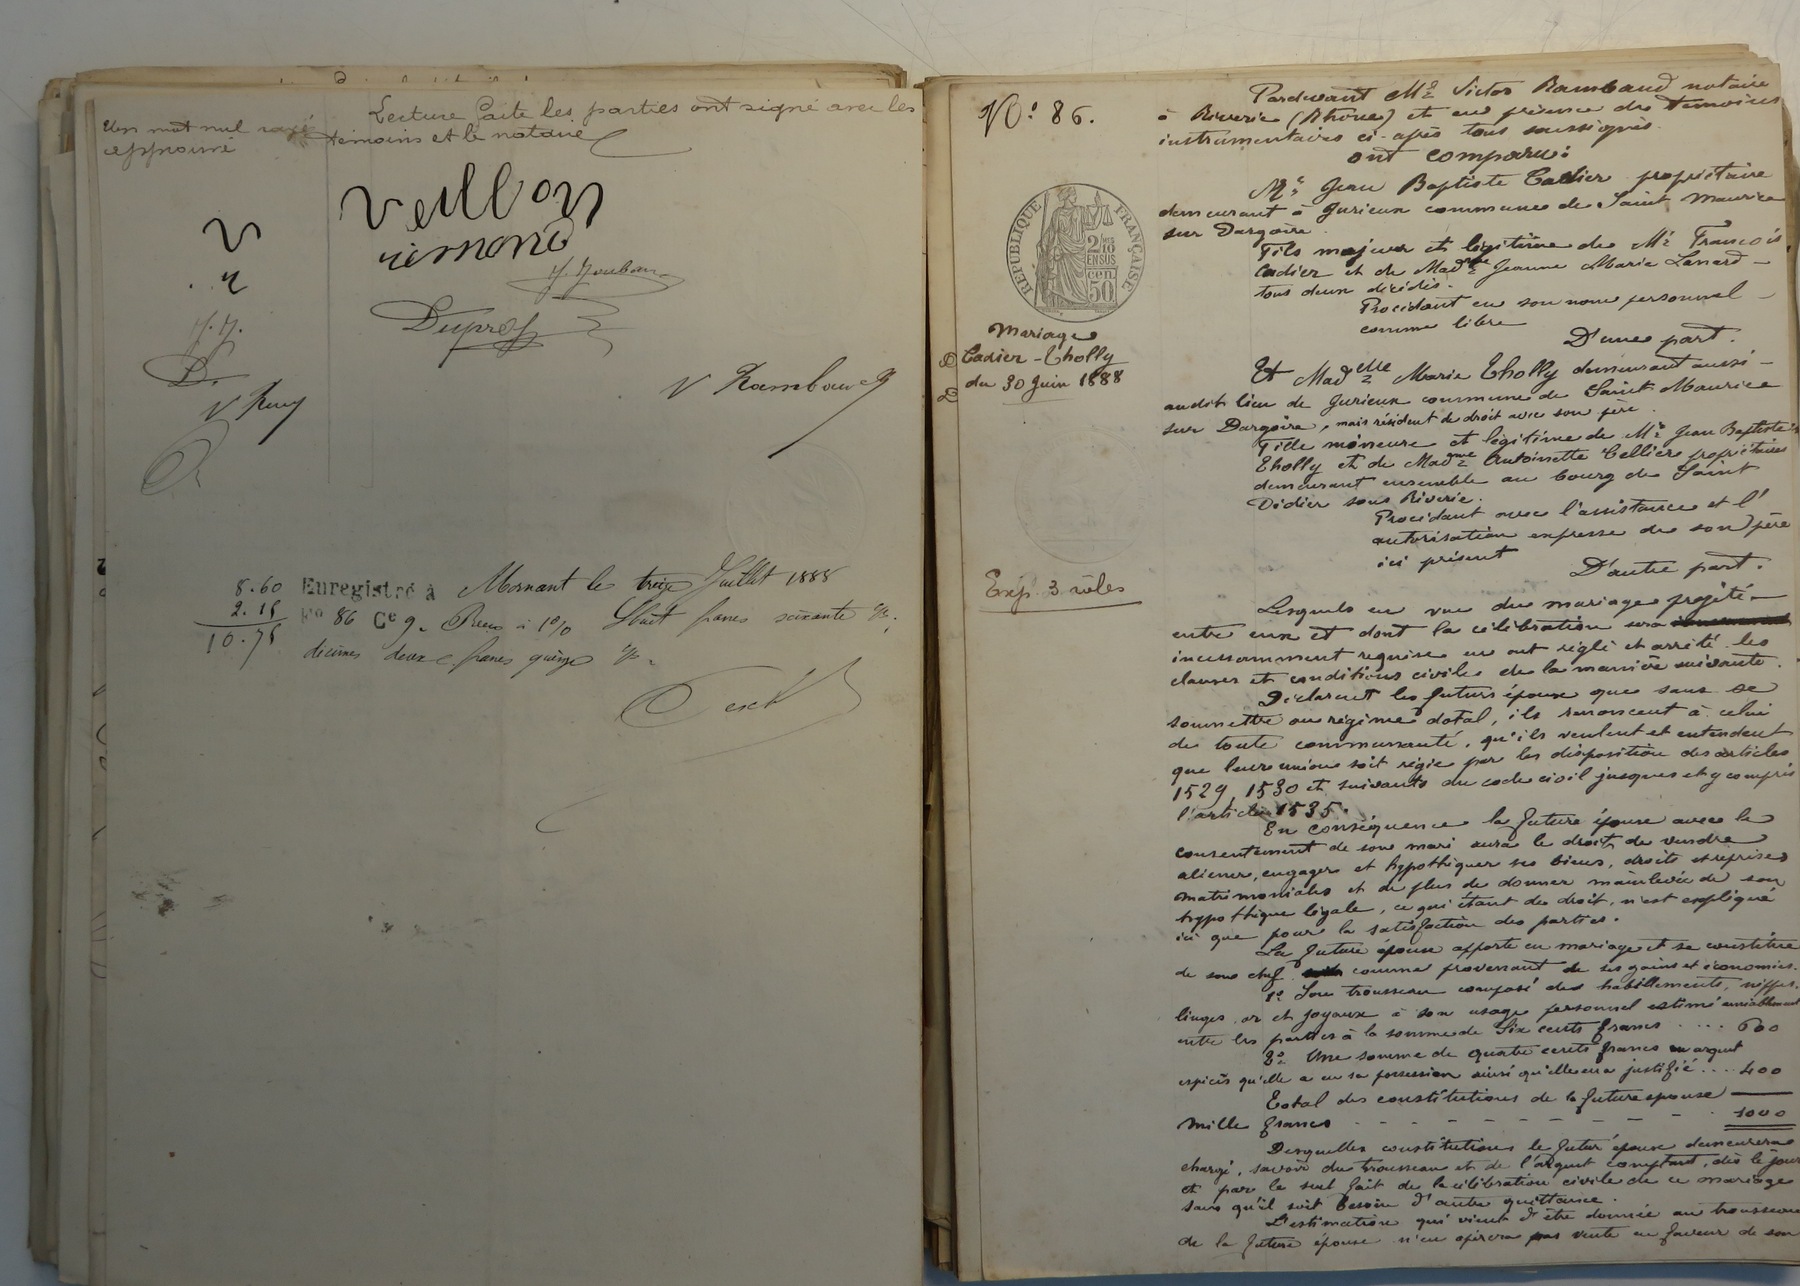 Lecture faite les parties ont signé avec les
témoins et le notaire
Un mot nul rayé
approuvé
Veillon
rimond
Duprat
V Rambaud
8.60
2.15
10.75
Enregistré à Mornant le treize Juillet 1888
Fo 86 Ce 9. Reçu à 1% Huit francs soixante c/.
décimes deux francs quinze c/.
No. 86.
RÉPUBLIQUE FRANÇAISE
2/10 EN SUS
50 cen
Mariage
Cadier - Tholly
du 30 Juin 1888
Exp. 3 rôles
Pardevant Me Victor Rambaud notaire
à Riverie (Rhône) et en présence des témoins
instrumentaires ci-après tous soussignés.
ont comparu:
Mr Jean Baptiste Cadier propriétaire
demeurant à Jurieux commune de Saint Maurice
sur Dargoire.
Fils majeur et légitime de Mr François
Cadier et de Madme Jeanne Marie Lanard
tous deux décédés.
Procédant en son nom personnel
comme libre
D'une part.
Et Madelle Marie Tholly demeurant aussi
audit lieu de Jurieux commune de Saint Maurice
sur Dargoire, mais résident de droit avec son père.
Fille mineure et légitime de Mr Jean Baptiste
Tholly et de Madme Antoinette Cellier propriétaires
demeurant ensemble au bourg de Saint
Didier sous Riverie.
Procédant avec l'assistance et l'
autorisation expresse de son père
ici présent
D'autre part.
Lesquels en vue du mariage projeté
entre eux et dont la célébration sera
incessamment requise en ont réglé et arrêté les
clauses et conditions civiles de la manière suivante.
Déclarent les futurs époux que sans se
soumettre au régime dotal, ils renoncent à celui
de toute communauté, qu'ils veulent et entendent
que leur union soit régie par les disposition des articles
1529, 1530 et suivants du code civil jusques et y compris
l'article 1535.
En conséquence la future épouse avec le
consentement de son mari aura le droit de vendre
aliener, engager et hypothéquer ses biens, droits et reprises
matrimoniales et de plus de donner mainlevée de son
hypothèque légale, ce qui étant de droit, n'est expliqué
ici que pour la satisfaction des parties.
La future épouse apporte en mariage et se constitue
de son chef comme provenant de ses gains et économies.
1o Son trousseau composé des habillements, nippes,
linges, or et joyaux à son usage personnel estimé amiablement
entre les parties à la somme de Six cents francs .... 600
2o Une somme de quatre cents francs en argent
espèces qu'elle a en sa possession ainsi qu'elle en a justifié .... 400
Total des constitutions de la future épouse
Mille francs - - - - - - - - 1000
Desquelles constitutions le futur époux demeurera
chargé, savoir du trousseau et de l'argent comptant, dès le jour
et par le seul fait de la célébration civile de ce mariage
sans qu'il soit besoin d'autre quittance.
L'estimation qui vient d'être donnée au trousseau
de la future épouse n'en opérera pas vente en faveur de son